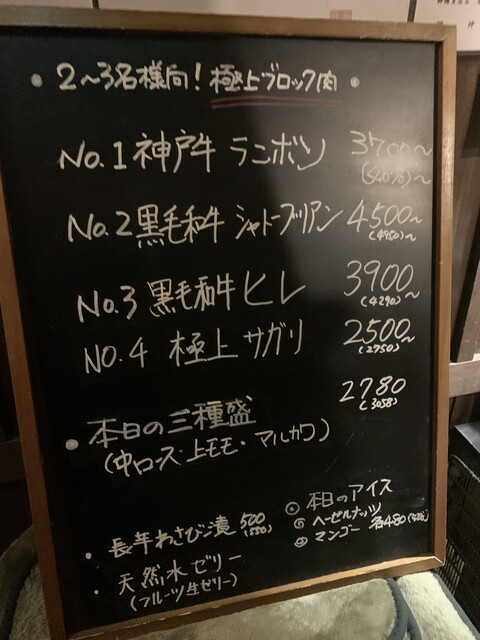 2~3名様向! 極上ブロック肉
No.1 神戸牛 ランボソ 3700~
No.2 黒毛和牛 シャトーブリアン 4500~
(4950)~
No.3 黒毛和牛ヒレ 3900~
(4290)
NO.4 極上 サガリ 2500~
(2750)
2780
(3058)
本日の三種盛
(中ロース・上モモ・マルカワ)
長年わさび漬 500
(550)
天然水ゼリー
(フルーツ/生ゼリー)
本日のアイス
ヘーゼルナッツ
マンゴー 各480